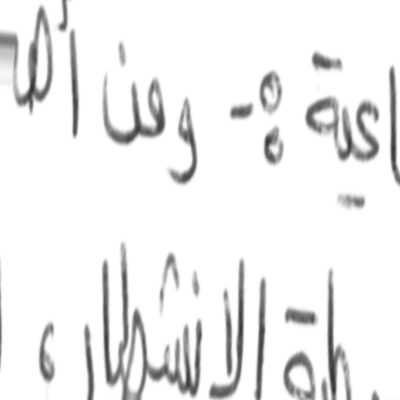 اعية :- ومن أهـ
طة الانشطار ،